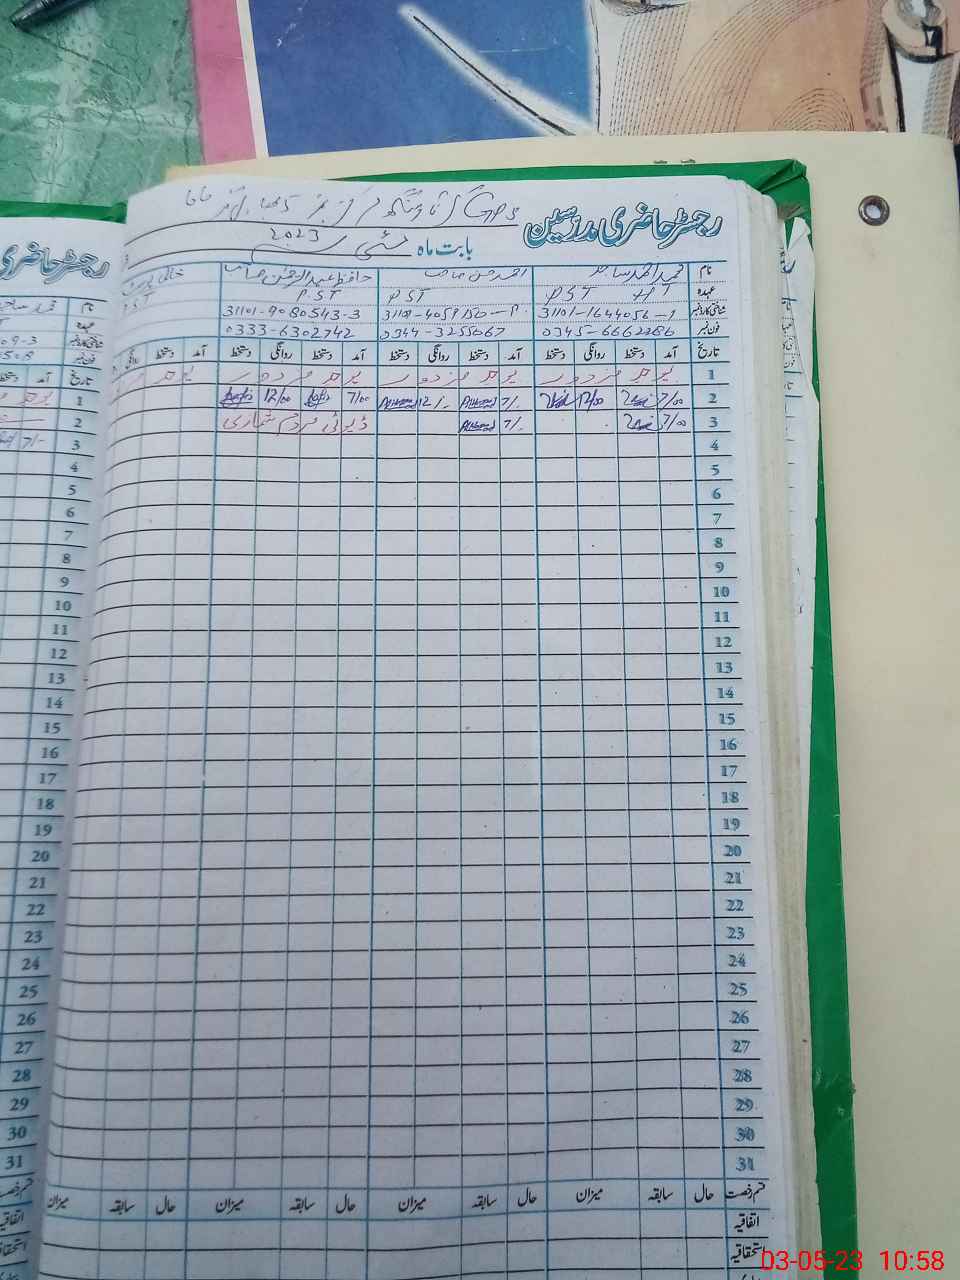 رجسٹر حاضری مدرسین
بابت ماہ مئی 2023
نام محمد احمد ساجد احمد حسن صاحب حافظ عبدالرحمٰن صاحب خالی پوسٹ
عہدہ PST HT PST PST PST
شناختی کارڈ نمبر 31101-1644056-1 31101-9080543-3
فون نمبر 0345-6662286 0344-3255067 0333-6302742
تاریخ آمد دستخط روانگی دستخط آمد دستخط روانگی دستخط آمد دستخط روانگی دستخط آمد دستخط روانگی
1 یوم مزدور یوم مزدور یوم مزدور یوم مزدور
2 7/00 12/00 7/- 12/- 7/00 12/00
3 7/00 7/- ڈیوٹی مردم شماری
4
5
6
7
8
9
10
11
12
13
14
15
16
17
18
19
20
21
22
23
24
25
26
27
28
29
30
31
قسم رخصت حال سابقہ میزان حال سابقہ میزان حال سابقہ میزان حال سابقہ میزان
اتفاقیہ
استحقاقیہ
رجسٹر حاضری
نام
عہدہ
09-3
تاریخ آمد دستخط
1
2
3 7/-
4
5
6
7
8
9
10
11
12
13
14
15
16
17
18
19
20
21
22
23
24
25
26
27
28
29
30
31
03-05-23 10:58